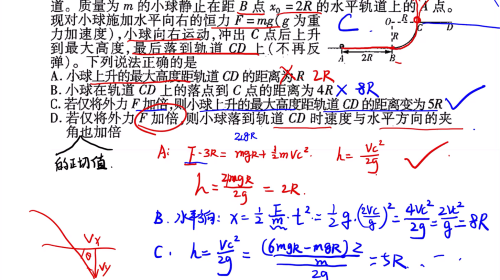 道。质量为 m 的小球静止在距 B 点 x₀=2R 的水平轨道上的 A 点。
现对小球施加水平向右的恒力 F=mg(g 为重
力加速度),小球向右运动,冲出 C 点后上升
到最大高度,最后落到轨道 CD 上(不再反
弹)。下列说法正确的是
C
O R C D
R
A B
2R
A. 小球上升的最大高度距轨道 CD 的距离为 R 2R
B. 小球在轨道 CD 上的落点到 C 点的距离为 4R × 8R
C. 若仅将外力 F 加倍,则小球上升的最大高度距轨道 CD 的距离变为 5R
D. 若仅将外力 F 加倍,则小球落到轨道 CD 时速度与水平方向的夹
角也加倍
的正切值.
A: F·3R = mgR + ½mVc² h = Vc²/2g
h = 4mgR/2g = 2R
B. 水平向: x = ½ F/m · t² = ½ g · (2Vc/g)² = 4Vc²/2g = 2Vc²/g = 8R
C: h = Vc²/2g = (6mgR − mgR) 2/m / 2g = 5R
Vx
θ
Vy